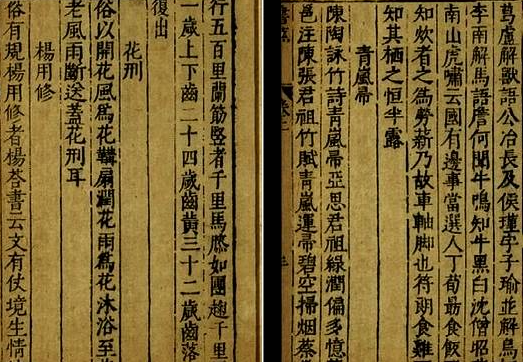 葛盧解獸語公冶長及侯瑾字子瑜並解鳥
李南解馬語詹何聞牛鳴知牛黑白沈僧昭
南山虎嘯云國有邊事當選人丁荀勗食飯
知炊者之為勞薪乃故車軸脚也符朗食雞
知其栖之恒半露
青嵐帚
陳陶詠竹詩青嵐帚亞思君祖綠潤偏多憶
邕注陳張君祖竹賦青嵐運帚碧空掃烟蔡
行五百里蘭筋豎者千里馬膝如團麴千里
一歲上下齒二十四歲齒黃三十二歲齒落
復出
花刑
俗以開花風為花鞴扇潤花雨為花沐浴至
老風雨斷送蓋花刑耳
楊用修
俗有規楊用修者楊荅書云文有仗境生情